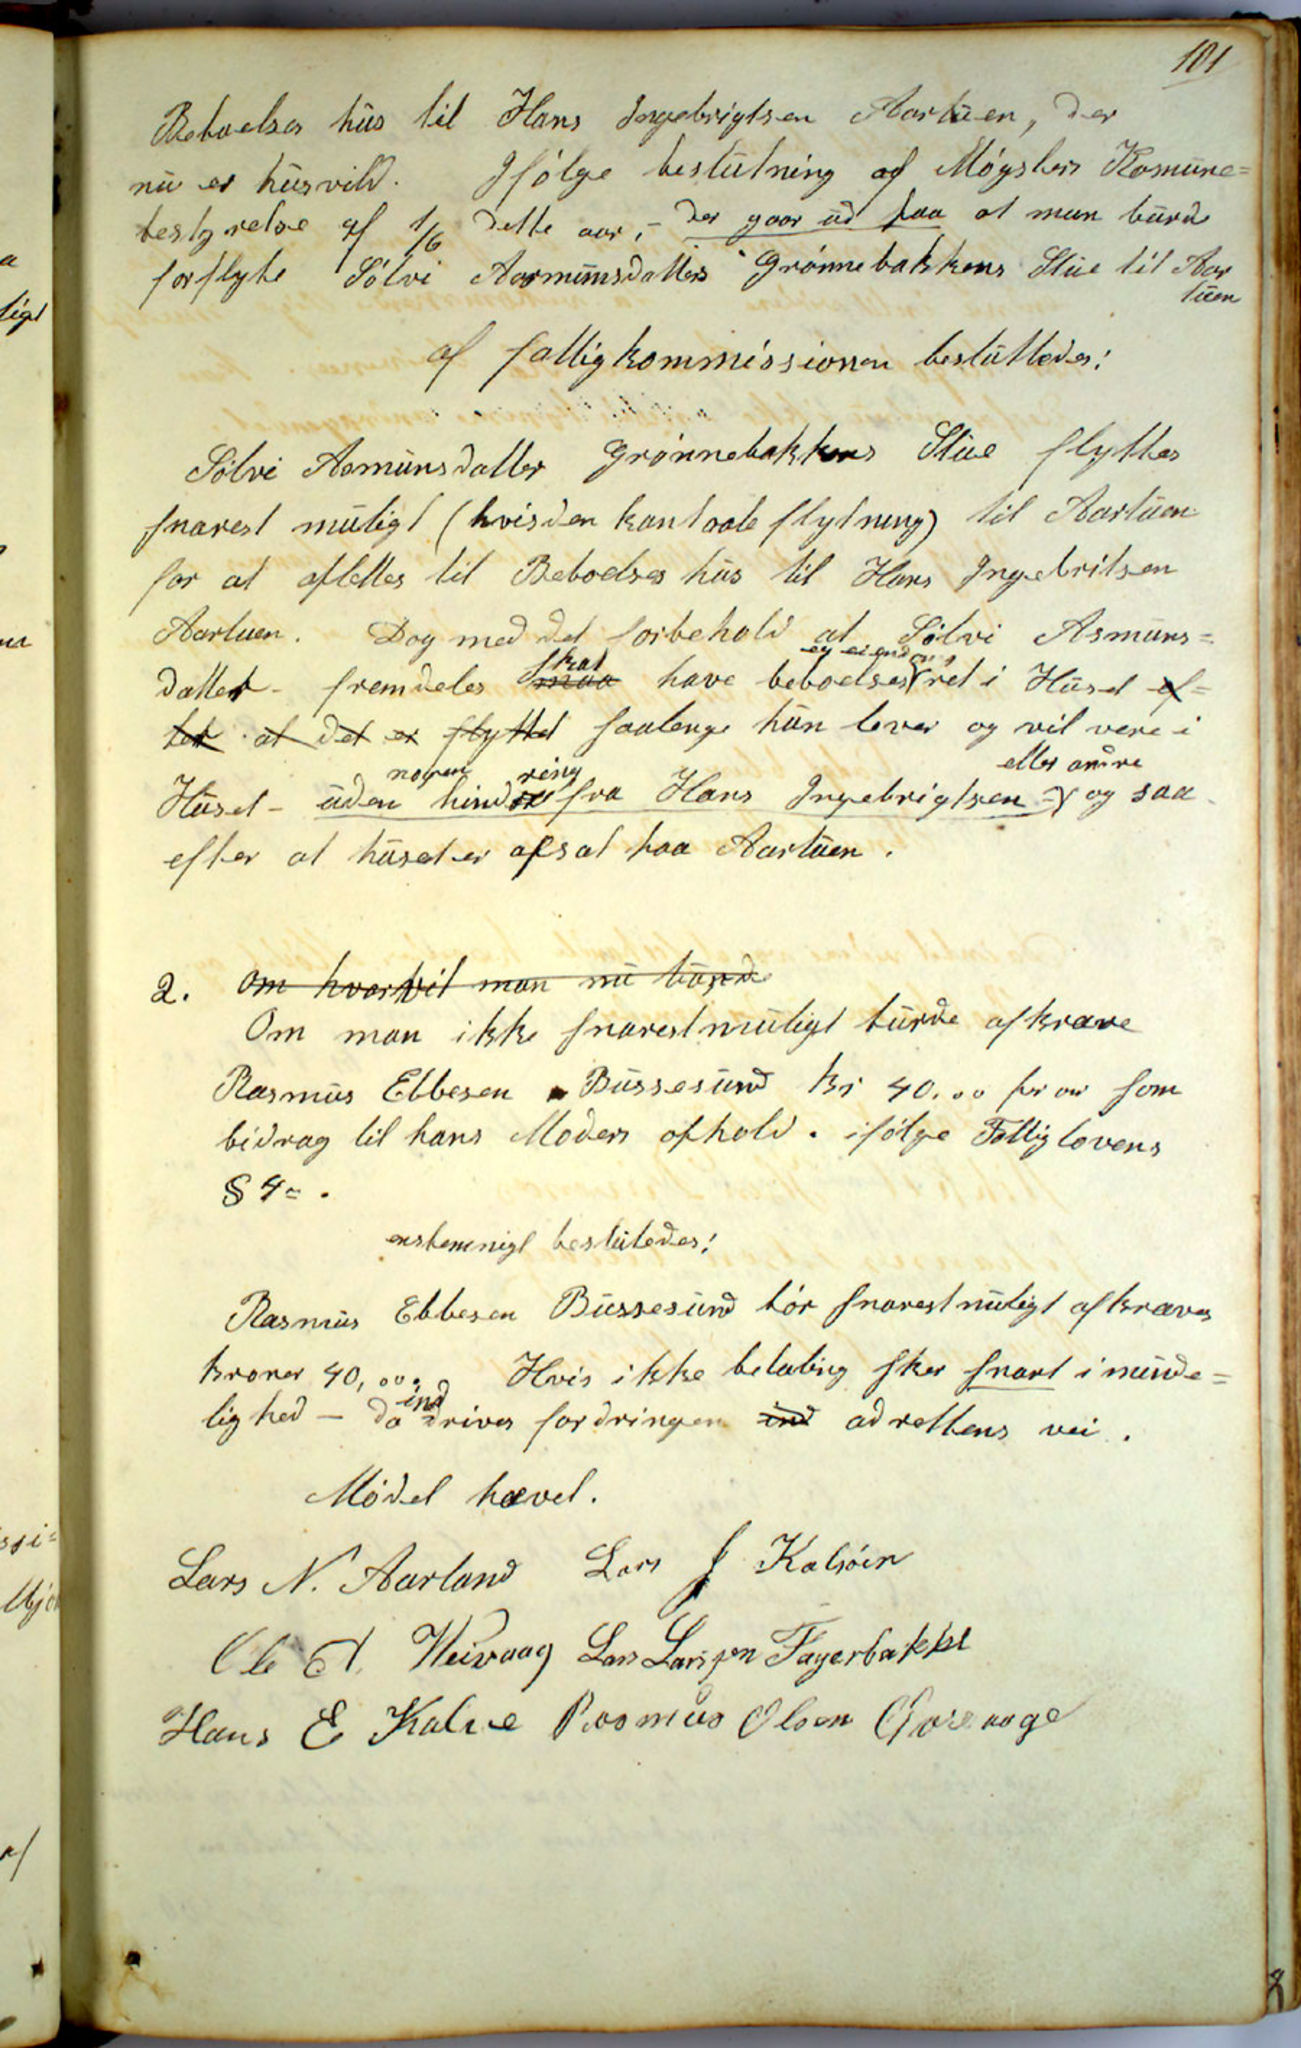 101
Beboelses hus til Hans Ingebrigtsen Aartuen, der
nu er husvild. Ifølge beslutning af Møgsters Komune=
bestyrelse af 1/6 dette aar, - der gaar ud paa at man burde
forflyte Sølvi Aasmunsdatters Grønnebakkens Stue til Aar
tuen
af fattigkommissionen besluttedes:
Sølvi Asmunsdatter Grønnebakkens Stue flyttes
snarest muligt (hvis den kan taale flytning) til Aartuen
for at afsettes til Beboelses hus til Hans Ingebritsen
Aartuen. Dog med det forbehold at Sølvi Asmuns=
og eiendoms
skal
datter - fremdeles maa have beboelses ret i Huset ef=
ter at det er flyttet saalenge hun lever og vil vere i
nogen ring eller andre
Huset - uden hinder fra Hans Ingebrigtsen = og saa
efter at huset er afsat paa Aartuen.
2. Om hvorvit man nu burde
Om man ikke snarest muligt burde afkræve
Rasmus Ebbesen Bussesund kr 40.00 per aar som
bidrag til hans Moders ophold. ifølge Fattiglovens
§ 4=.
enstemmigt beslutedes:
Rasmus Ebbesen Bussesund bør snarest muligt afkræves
kroner 40,00. Hvis ikke betaling sker snart i minde=
ind
lighed - da drives fordringen ind ad rettens vei.
Mødet hævet.
Lars N. Aarland Lars J Kalsøin
Ole A. Heivaag Lars Larssen Fagerbakke
Hans E Kalve Rasmus Olsen